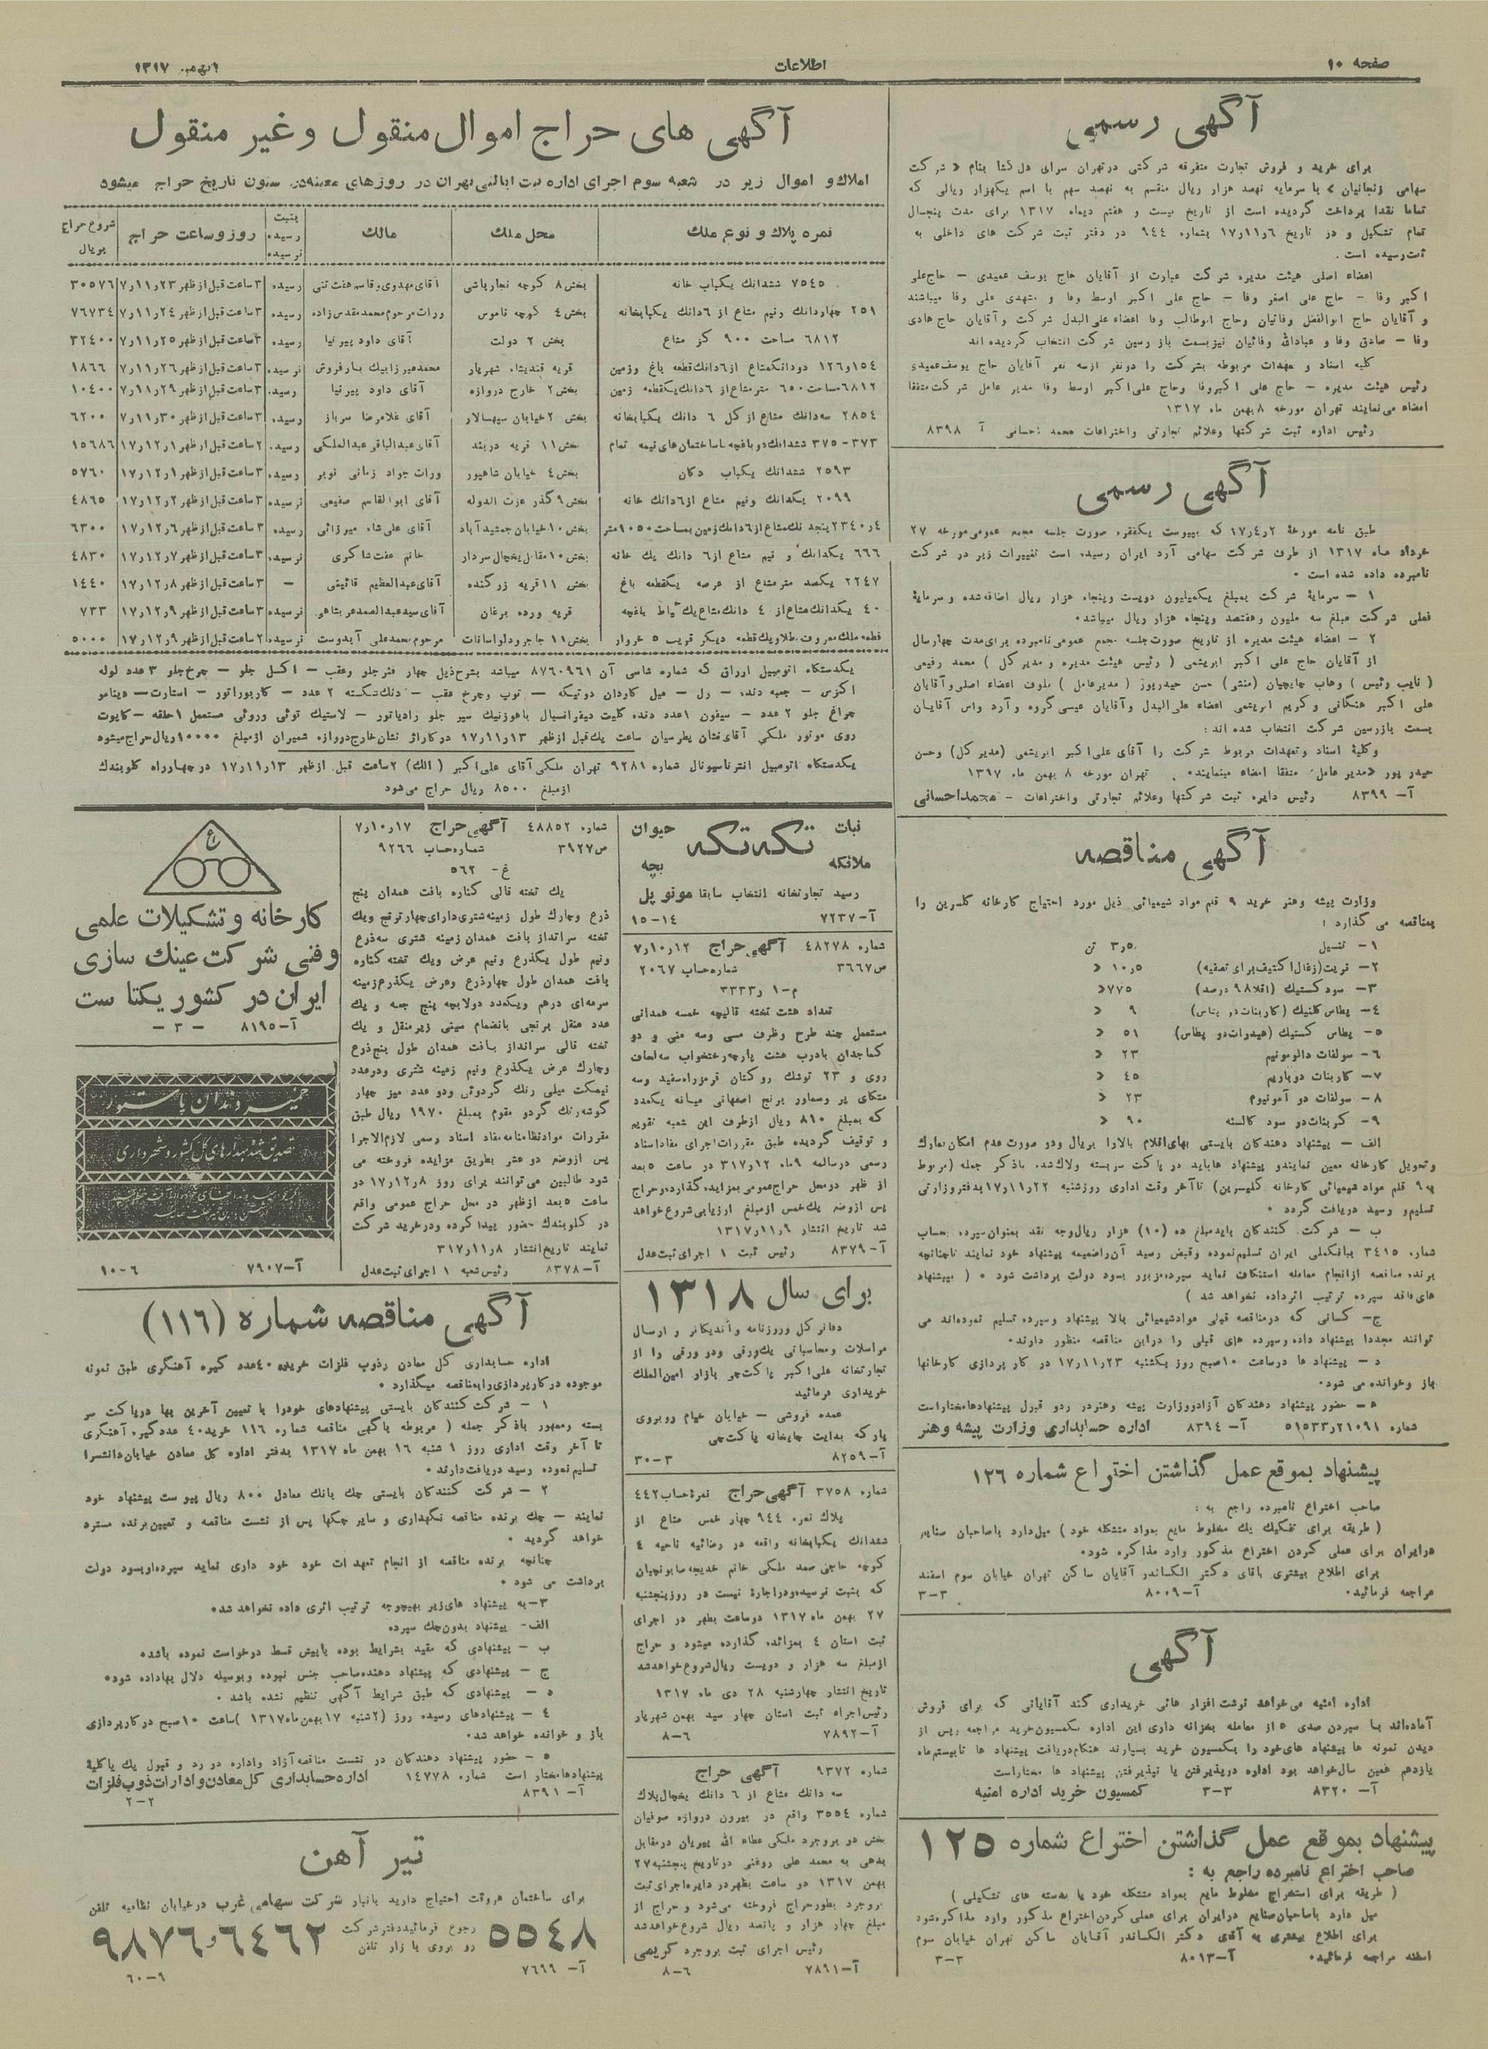 صفحه ۱۰
اطلاعات
۹ بهمن ۱۳۱۷
آگهی رسمی
برای خرید و فروش تجارت متفرقه شرکتی در تهران سرای دل گشا بنام « شرکت
سهامی زنجانیان » با سرمایه نهصد هزار ریال منقسم به نهصد سهم با اسم یکهزار ریالی که
تماما نقدا پرداخت گردیده است از تاریخ بیست و هفتم دیماه ۱۳۱۷ برای مدت پنجسال
تمام تشکیل و در تاریخ ۱۷٫۱۱٫۶ بشماره ۹۴۴ در دفتر ثبت شرکت های داخلی به
ثبت رسیده است .
اعضاء اصلی هیئت مدیره شرکت عبارت از آقایان حاج یوسف عمیدی - حاج علی
اکبر وفا - حاج علی اصغر وفا - حاج علی اکبر اوسط وفا و مشهدی علی وفا میباشند
و آقایان حاج ابوالفضل وفائیان وحاج ابوطالب وفا اعضاء علی البدل شرکت و آقایان حاج هادی
وفا - صادق وفا و عبدالله وفائیان نیز بسمت بازرسین شرکت انتخاب گردیده اند
کلیه اسناد و تعهدات مربوطه بشرکت را دو نفر از سه نفر آقایان حاج یوسف عمیدی
رئیس هیئت مدیره - حاج علی اکبر وفا وحاج علی اکبر اوسط وفا مدیر عامل شرکت متفقا
امضاء می نمایند تهران مورخه ۸ بهمن ماه ۱۳۱۷
رئیس اداره ثبت شرکتها وعلائم تجارتی واختراعات محمد احسانی آ ۸۳۹۸
آگهی رسمی
طبق نامه مورخهٔ ۱۷٫۴٫۲ که بپیوست یکفقره صورت جلسه مجمع عمومی مورخه ۲۷
خرداد ماه ۱۳۱۷ از طرف شرکت سهامی آرد ایران رسیده است تغییرات زیر در شرکت
نامبرده داده شده است .
۱ - سرمایهٔ شرکت بمبلغ یکمیلیون دویست وپنجاه هزار ریال اضافه شده و سرمایهٔ
فعلی شرکت مبلغ سه ملیون وهفتصد وپنجاه هزار ریال میباشد.
۲ - اعضاء هیئت مدیره از تاریخ صورت جلسه مجمع عمومی نامبرده برای مدت چهارسال
از آقایان حاج علی اکبر ابریشمی ( رئیس هیئت مدیره و مدیر کل ) محمد رفیعی
( نایب رئیس ) وهاب چایچیان (منشی) حسن حیدرپور ( مدیرعامل )
علی اکبر هنگانی و کریم ابریشمی اعضاء علی البدل وآقایان عیسی گروه و آرد واس آقایان
بسمت بازرسین شرکت انتخاب شده اند :
وکلیهٔ اسناد وتعهدات مربوط شرکت را آقای علی اکبر ابریشمی (مدیر کل) وحسن
حیدر پور «مدیر عامل» متفقا امضاء مینمایند. تهران مورخه ۸ بهمن ماه ۱۳۱۷
آ- ۸۳۹۹ رئیس دایره ثبت شرکتها وعلائم تجارتی واختراعات - محمد احسانی
آگهی مناقصه
وزارت پیشه وهنر خرید ۹ قلم مواد شیمیائی ذیل مورد احتیاج کارخانه گلسرین را
بمناقصه می گذارد :
۱- تنسیل ۳٫۵۰ تن
۲- نریت (زغال اکتیف برای تصفیه) ۱۰٫۵ «
۳- سود کستیک (اقلا ۹۸ درصد) ۷۷۵ «
۴- پطاس کلنیک (کاربنات دو پتاس) ۹ «
۵- پطاس کستیک (هیدرات دو پطاس) ۵۱ «
۶- سولفات دالومونیم ۲۳ «
۷- کاربنات دوباریم ۴۵ «
۸- سولفات دو آمونیوم ۲۳ «
۹- کربنات دو سود کالسنه ۹۰ «
الف - پیشنهاد دهندگان بایستی بهای اقلام بالا را بریال ودر صورت عدم امکان بمارک
وتحویل کارخانه معین نمایند و پیشنهاد ها باید در پاکت سربسته ولاک شده باذکر جمله (مربوط
به ۹ قلم مواد شیمیائی کارخانه گلیسرین) تا آخر وقت اداری روز شنبه ۱۷٫۱۱٫۲۲ بدفتر وزارتی
تسلیم و رسید دریافت گردد .
ب - شرکت کنندگان باید مبلغ ده (۱۰) هزار ریال وجه نقد بعنوان سپرده بحساب
شماره ۳۴۱۵ ببانک ملی ایران تسلیم نموده وقبض رسید آن را ضمیمه پیشنهاد خود نمایند تا چنانچه
برنده مناقصه از انجام معامله استنکاف نماید سپرده مزبور بسود دولت برداشت شود . ( بپیشنهاد
های فاقد سپرده ترتیب اثر داده نخواهد شد )
ج- کسانی که در مناقصه قبلی موادشیمیائی بالا پیشنهاد وسپرده تسلیم نموده اند می
توانند مجددا پیشنهاد داده وسپرده های قبلی را دراین مناقصه منظور دارند.
د - پیشنهاد ها درساعت ۱۰ صبح روز یکشنبه ۱۷٫۱۱٫۲۳ در کار پردازی کارخانها
باز وخوانده می شود.
ه - حضور پیشنهاد دهندگان آزاد ووزارت پیشه وهنر در رد و قبول پیشنهادها مختار است
شماره ۵۱۵۳۳٫۲۱۰۹۱ آ- ۸۳۹۴ اداره حسابداری وزارت پیشه وهنر
پیشنهاد بموقع عمل گذاشتن اختراع شماره ۱۲۶
صاحب اختراع نامبرده راجع به :
( طریقه برای تفکیک یک مخلوط مایع بمواد متشکله خود ) میل دارد با صاحبان صنایع
در ایران برای عملی کردن اختراع مذکور وارد مذاکره شود.
برای اطلاع بیشتری باقای دکتر الکساندر آقایان ساکن تهران خیابان سوم اسفند
مراجعه فرمائید. آ- ۸۰۰۹ ۳-۳
آگهی
اداره امنیه می خواهد نوشت افزار هائی خریداری کند آقایانی که برای فروش
آماده اند با سپردن صدی ۵ از معامله بخزانه داری این اداره بکمسیون خرید مراجعه و پس از
دیدن نمونه ها پیشنهاد های خود را بکمسیون خرید بسپارند هنگام دریافت پیشنهاد ها تا بیستم ماه
یازدهم همین سال خواهد بود اداره در پذیرفتن یا نپذیرفتن پیشنهاد ها مختار است
آ- ۸۳۲۰ ۳-۳ کمسیون خرید اداره امنیه
پیشنهاد بموقع عمل گذاشتن اختراع شماره ۱۲۵
صاحب اختراع نامبرده راجع به :
( طریقه برای استخراج مخلوط مایع بمواد متشکله خود یا بدسته های تشکیلی )
میل دارد باصاحبان صنایع در ایران برای عملی کردن اختراع مذکور وارد مذاکره شود
برای اطلاع بیشتری به آقای دکتر الکساندر آقایان ساکن تهران خیابان سوم
اسفند مراجعه فرمائید. آ- ۸۰۱۳ ۳-۳
آگهی های حراج اموال منقول و غیر منقول
املاک و اموال زیر در شعبه سوم اجرای اداره ثبت ایالتی تهران در روزهای معینه در ستون تاریخ حراج میشود
نمره پلاک و نوع ملک | محل ملک | مالک | بثبت رسیده نرسیده | روز و ساعت حراج | شروع حراج بریال
۷۵۴۵ ششدانک یکباب خانه | بخش ۸ کوچه نجارباشی | آقای مهدی و قاسم هفت تنی | رسیده | ۳ ساعت قبل از ظهر ۷٫۱۱٫۲۳ | ۳۰۵۷۶
۲۵۱ چهاردانک ونیم مشاع از ۶ دانک یکبابخانه | بخش ۴ کوچه ناموس | وراث مرحوم محمد مقدس زاده | رسیده | ۳ ساعت قبل از ظهر ۷٫۱۱٫۲۴ | ۷۶۷۳۴
۶۸۱۲ مساحت ۹۰۰ گز مشاع | بخش ۲ دولت | آقای داود پیرنیا | رسیده | ۳ ساعت قبل از ظهر ۷٫۱۱٫۲۵ | ۳۲۴۰۰
۱۵۴ و ۱۲۶ دودانک مشاع از ۶ دانک قطعه باغ وزمین | قریه قندیشاه شهریار | محمد میرزا بیک بارفروش | نرسیده | ۳ ساعت قبل از ظهر ۷٫۱۱٫۲۶ | ۱۸۶۶
۶۸۱۲ مساحت ۶۵۰ متر مشاع از ۶ دانک یکقطعه زمین | بخش ۲ خارج دروازه | آقای داود پیرنیا | رسیده | ۳ ساعت قبل از ظهر ۷٫۱۱٫۲۹ | ۱۰۴۰۰
۲۸۵۴ سه دانک مشاع از کل ۶ دانک یکبابخانه | بخش ۲ خیابان سپهسالار | آقای غلامرضا سرباز | رسیده | ۳ ساعت قبل از ظهر ۷٫۱۱٫۳۰ | ۶۲۰۰
۳۷۳-۳۷۵ ششدانک دو باغچه با ساختمان های نیمه تمام | بخش ۱۱ قریه دربند | آقای عبدالباقی عبدالملکی | رسیده | ۲ ساعت قبل از ظهر ۱۷٫۱۲٫۱ | ۱۵۶۸۶
۲۵۹۳ ششدانک یکباب دکان | بخش ۴ خیابان شاهپور | وراث جواد زمانی نوبر | رسیده | ۳ ساعت قبل از ظهر ۱۷٫۱۲٫۱ | ۵۷۶۰
۲۰۹۹ یکدانک ونیم مشاع از ۶ دانک خانه | بخش ۹ گذر عزت الدوله | آقای ابوالقاسم صفیعی | نرسیده | ۳ ساعت قبل از ظهر ۱۷٫۱۲٫۲ | ۴۸۶۵
۲۳۴۰٫۴ پنجدانک مشاع از ۶ دانک زمین بمساحت ۱۰۵۰ متر | بخش ۱۰ خیابان جمشیدآباد | آقای علی شاه میرزائی | رسیده | ۳ ساعت قبل از ظهر ۱۷٫۱۲٫۶ | ۶۳۰۰
۶۶۶ یکدانک و نیم مشاع از ۶ دانک یک خانه | بخش ۱۰ مقابل یخچال سردار | خانم عفت شاکری | نرسیده | ۳ ساعت قبل از ظهر ۱۷٫۱۲٫۷ | ۴۸۳۰
۲۲۴۷ یکصد متر مشاع از عرصه یکقطعه باغ | بخش ۱۱ قریه زرگنده | آقای عبدالعظیم قائینی | - | ۳ ساعت قبل از ظهر ۱۷٫۱۲٫۸ | ۱۴۴۰
۴۰ یکدانک مشاع از ۴ دانک مشاع یک حیاط باغچه | قریه ورده برغان | آقای سید عبدالصمد عربشاهی | نرسیده | ۳ ساعت قبل از ظهر ۱۷٫۱۲٫۹ | ۷۳۳
قطعه ملک معروف بطلا ویک قطعه دیگر قریب ۵ خروار | بخش ۱۱ جاجرود لواسانات | مرحوم محمدعلی آبدوست | نرسیده | ۲ ساعت قبل از ظهر ۱۷٫۱۲٫۹ | ۵۰۰۰
یکدستگاه اتومبیل اوراق که شماره شاسی آن ۸۷۶۰۹۶۱ میباشد بشرح ذیل چهار فنر جلو وعقب - اکسل جلو - چرخ جلو ۳ عدد لوله
اکزس - جعبه دنده - رل - میل کاردان دوتیکه - توپ وچرخ عقب - دنک شکسته ۲ عدد - کاربوراتور - استارت - دینامو
چراغ جلو ۲ عدد - سیفون ۱ عدد دنده کلیت دیفرانسیال باهوزنیک سپر جلو رادیاتور - لاستیک توئی وروئی مستعمل ۱ حلقه - کاپوت
روی موتور ملکی آقای نشان پطرسیان ساعت یک قبل از ظهر ۱۷٫۱۱٫۱۳ در گاراژ نشان خارج دروازه شمیران از مبلغ ۱۰۰۰۰ ریال حراج میشود
یکدستگاه اتومبیل انترناسیونال شماره ۹۲۸۱ تهران ملکی آقای علی اکبر (الک) ۲ ساعت قبل از ظهر ۱۷٫۱۱٫۱۳ در چهارراه گلوبندک
از مبلغ ۸۵۰۰ ریال حراج می شود
نبات تکه تکه حیوان
ملائکه بچه
رسید تجارتخانه انتخاب سابقا مونو پل
آ- ۷۲۳۷ ۱۴-۱۵
شماره ۴۸۲۷۸ آگهی حراج ۷٫۱۰٫۱۲
ص ۳۶۶۷ شماره حساب ۲۰۶۷
م-۱ ر ۳۳۳۳
تعداد هشت تخته قالیچه خمسه همدانی
مستعمل چند طرح وظرف مسی وسه منی و دو
کماجدان بادرب هشت پارچه رختخواب سه لحاف
روی و ۲۳ توشک روکتان قرمز راه سفید وسه
متکای پر وسماور برنج اصفهانی میانه یکعدد
که بمبلغ ۸۱۰ ریال ازطرف این شعبه تقویم
و توقیف گردیده طبق مقررات اجرای مفاد اسناد
رسمی درسالمه ۹ ماه ۳۱۷٫۱۲ در ساعت ۵ بعد
از ظهر در محل حراج عمومی بمزایده گذارده وحراج
پس از وضع یک خمس از مبلغ ارزیابی شروع خواهد
شد تاریخ انتشار ۱۳۱۷٫۱۱٫۹
آ- ۸۳۷۹ رئیس ثبت ۱ اجرای ثبت عدل
برای سال ۱۳۱۸
دفاتر کل وروزنامه واندیکاتر و ارسال
مراسلات ومحاسباتی یک ورقی ودو ورقی را از
تجارتخانه علی اکبر پاکت چی بازار امین الملک
خریداری فرمائید
عمده فروشی - خیابان خیام روبروی
پارکه بدایت چاپخانه پاکت چی
آ- ۸۲۵۹ ۳-۳۰
شماره ۳۷۵۸ آگهی حراج نمره حساب ۴۴۲
پلاک نمره ۹۴۴ چهار خمس مشاع از
ششدانک یکبابخانه واقعه در رضائیه ناحیه ۴
کوچه حاجی صمد ملکی خانم خدیجه صابونچیان
که بثبت نرسیده ودر اجارهٔ نیست در روز پنجشنبه
۲۷ بهمن ماه ۱۳۱۷ دوساعت بظهر در اجرای
ثبت استان ۴ بمزائده گذارده میشود و حراج
ازمبلغ سه هزار و دویست ریال شروع خواهد شد
تاریخ انتشار چهارشنبه ۲۸ دی ماه ۱۳۱۷
رئیس اجراء ثبت استان چهار سید بهمن شهریار
آ- ۷۸۹۲ ۶-۸
شماره ۹۳۷۲ آگهی حراج
سه دانک مشاع از ۶ دانک یخچال پلاک
شماره ۳۵۵۴ واقع در بیرون دروازه صوفیان
بخش دو بروجرد ملکی عطاء الله پیریان در مقابل
بدهی به محمد علی روغنی درتاریخ پنجشنبه ۲۷
بهمن ۱۳۱۷ دو ساعت بظهر در دایره اجرای ثبت
بروجرد بطور حراج فروخته می شود و حراج از
مبلغ چهار هزار و پانصد ریال شروع خواهد شد
رئیس اجرای ثبت بروجرد کریمی
آ- ۷۸۹۱ ۶-۸
شماره ۴۸۸۵۲ آگهی حراج ۷٫۱۰٫۱۷
ص ۳۹۲۷ شماره حساب ۹۲۶۶
غ- ۵۶۲
یک تخته قالی کناره بافت همدان پنج
ذرع وچارک طول زمینه شتری دارای چهار ترنج ویک
تخته سرانداز بافت همدان زمینه شتری سه ذرع
ونیم طول یکذرع ونیم عرض ویک تخته کناره
بافت همدان طول چهار ذرع وعرض یکذرع زمینه
سرمه ای درهم ویکعدد دولابچه پنج جعبه و یک
عدد منقل برنجی بانضمام سینی زیر منقل و یک
تخته قالی سرانداز بافت همدان طول پنج ذرع
وچارک عرض یکذرع ونیم زمینه شتری ودو عدد
نیمکت مبلی رنک گردوئی ودو عدد میز چهار
گوشه رنک گردو مقوم بمبلغ ۱۹۷۰ ریال طبق
مقررات مواد نظامنامه مفاد اسناد رسمی لازم الاجرا
پس ازوضع دو عشر بطریق مزایده فروخته می
شود طالبین می توانند برای روز ۱۷٫۱۲٫۸ در
ساعت ۵ بعد ازظهر در محل حراج عمومی واقع
در گلوبندک حضور پیدا کرده ودر خرید شرکت
نمایند تاریخ انتشار ۳۱۷٫۱۱٫۸
آ- ۸۳۷۸ رئیس شعبه ۱ اجرای ثبت عدل
ع
کارخانه و تشکیلات علمی
و فنی شرکت عینک سازی
ایران در کشور یکتا ست
آ- ۸۱۹۵ - ۳ -
خمیر دندان پاستور
تصدیق شده بهداریهای کل کشور و شهرداری
آ- ۷۹۰۷ ۶-۱۰
آگهی مناقصه شماره (۱۱۶)
اداره حسابداری کل معادن و ذوب فلزات خرید ۴۰۰ عدد گیره آهنگری طبق نمونه
موجوده در کار پردازی را بمناقصه میگذارد .
۱ - شرکت کنندگان بایستی پیشنهادهای خودرا با تعیین آخرین بها درپاکت سر
بسته وممهور باذکر جمله ( مربوطه باگهی مناقصه شماره ۱۱۶ خرید ۴۰ عدد گیره آهنگری
تا آخر وقت اداری روز ۱ شنبه ۱۶ بهمن ماه ۱۳۱۷ بدفتر اداره کل معادن خیابان دانشسرا
تسلیم نموده رسید دریافت دارند .
۲ - شرکت کنندگان بایستی چک بانک معادل ۸۰۰ ریال پیوست پیشنهاد خود
نمایند - چک برنده مناقصه نگهداری و سایر چکها پس از نشست مناقصه و تعیین برنده مسترد
خواهد گردید .
چنانچه برنده مناقصه از انجام تعهدات خود خود داری نماید سپرده او بسود دولت
برداشت می شود .
۳-به پیشنهاد های زیر بهیچوجه ترتیب اثری داده نخواهد شد.
الف- پیشنهاد بدون چک سپرده
ب - پیشنهادی که مقید بشرایط بوده یا پیش قسط درخواست نموده باشد.
ج - پیشنهادی که پیشنهاد دهنده صاحب جنس نبوده وبوسیله دلال بها داده شود.
ه - پیشنهادی که طبق شرایط آگهی تنظیم نشده باشد .
۴ - پیشنهادهای رسیده روز (۲ شنبه ۱۷ بهمن ماه ۱۳۱۷ )ساعت ۱۰ صبح در کار پردازی
باز و خوانده خواهد شد.
۵ - حضور پیشنهاد دهندگان در نشست مناقصه آزاد واداره در رد و قبول یک یا کلیهٔ
پیشنهادها مختار است شماره ۱۴۷۷۸ اداره حسابداری کل معادن و ادارات ذوب فلزات
آ- ۸۳۹۱ ۲-۲
تیر آهن
برای ساختمان هروقت احتیاج دارید بانبار شرکت سهامی غرب در خیابان نظامیه تلفن
۵۵۴۸ رجوع فرمائید دفتر شرکت رو بروی بازار تلفن ۶۴۶۲ و ۹۸۷۶
آ- ۷۶۹۹ ۹-۶۰